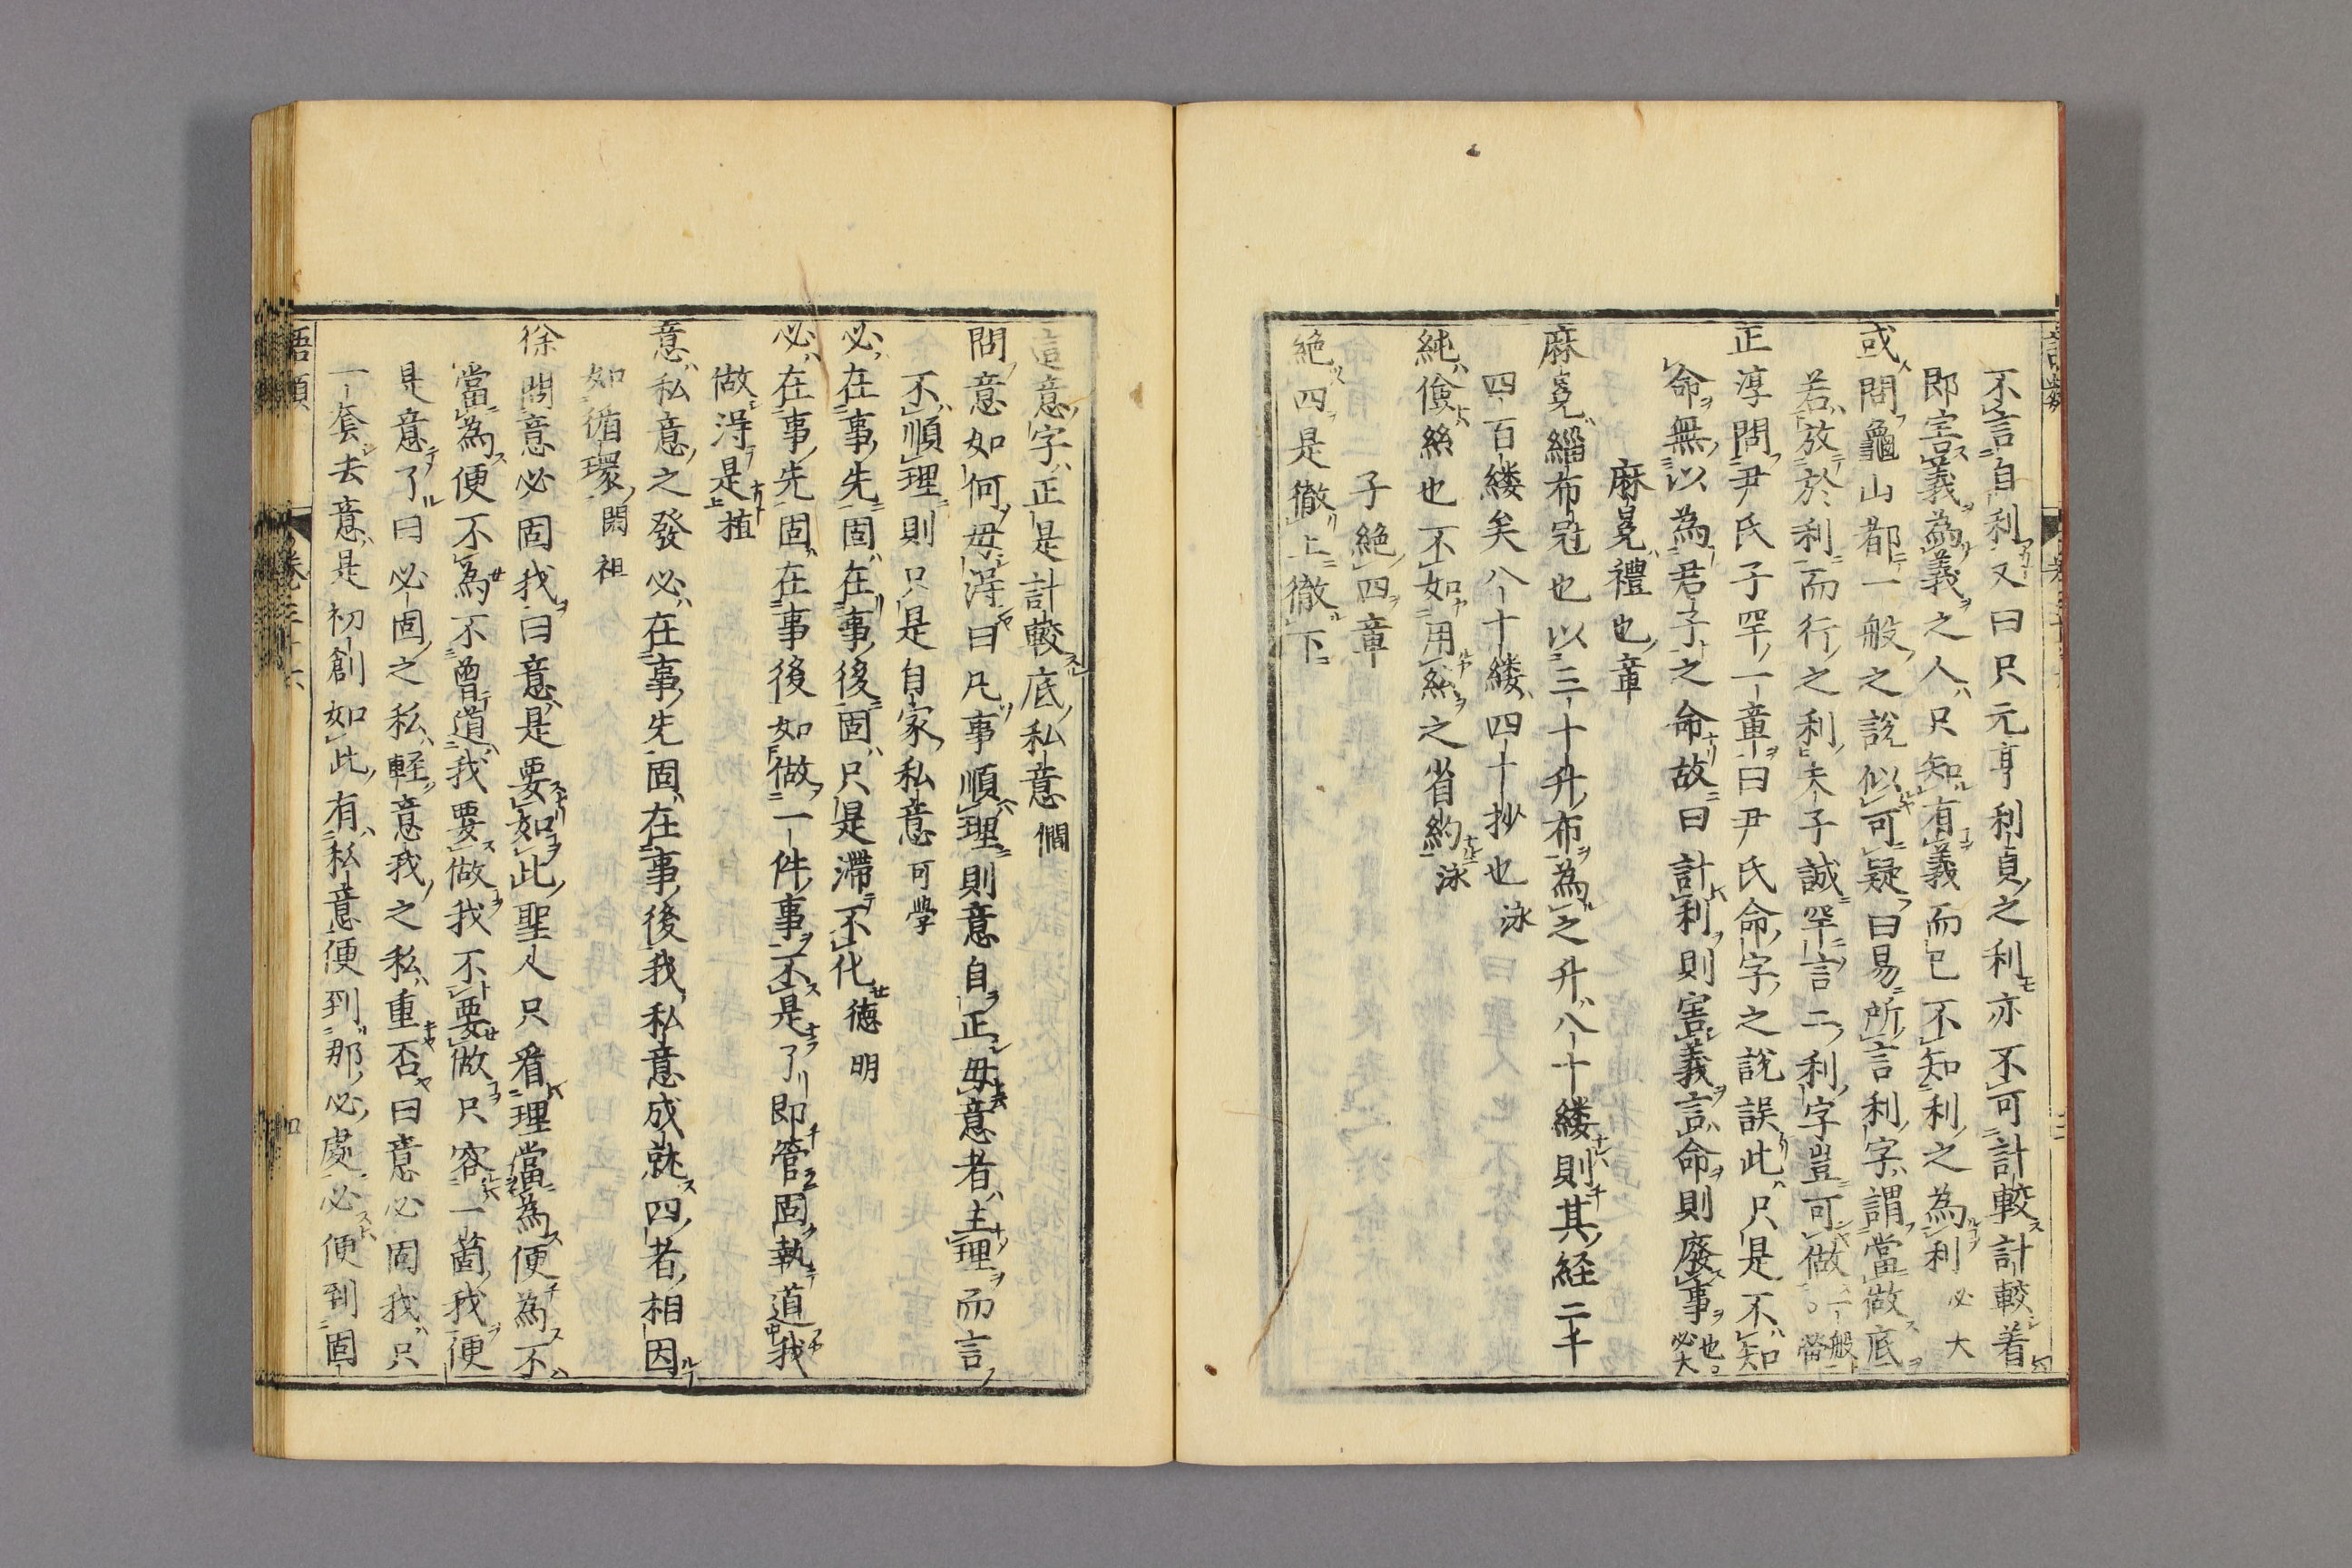 不言自利又曰只元亨利貞之利亦不可計較計較着
即害義為義之人只知有義而已不知利之為利 必大
或問龜山都一般之說似可疑曰易所言利字謂當做底
若放於利而行之利夫子誠罕言二利字豈可做一般
正淳問尹氏子罕一章曰尹氏命字之說誤此只是不知
命無以為君子之命故曰計利則害義言命則廢事也 必大
麻冕禮也章
麻冕緇布冠也以三十升布為之升八十縷則其経二千
四百縷矣八十縷四十抄也 泳
純儉絲也不如用絲之省約 泳
子絶四章
絶四是徹上徹下
這意字正是計較底私意 僩
問意如何毋淂曰凡事順理則意自正毋意者主理而言
不順理則只是自家私意 可學
必在事先固在事後固只是滞不化 徳明
必在事先固在事後如做一件事不是了即管固執道我
做淂是 植
意私意之發必在事先固在事後我私意成就四者相因
如循環 閎祖
徐問意必固我曰意是要如此聖人只看理當為便為不
當為便不為不曾道我要做我不要做只容一箇我便
是意了曰必固之私軽意我之私重否曰意必固我只
一套去意是初創如此有私意便到那必處必便到固
語類 卷三十六